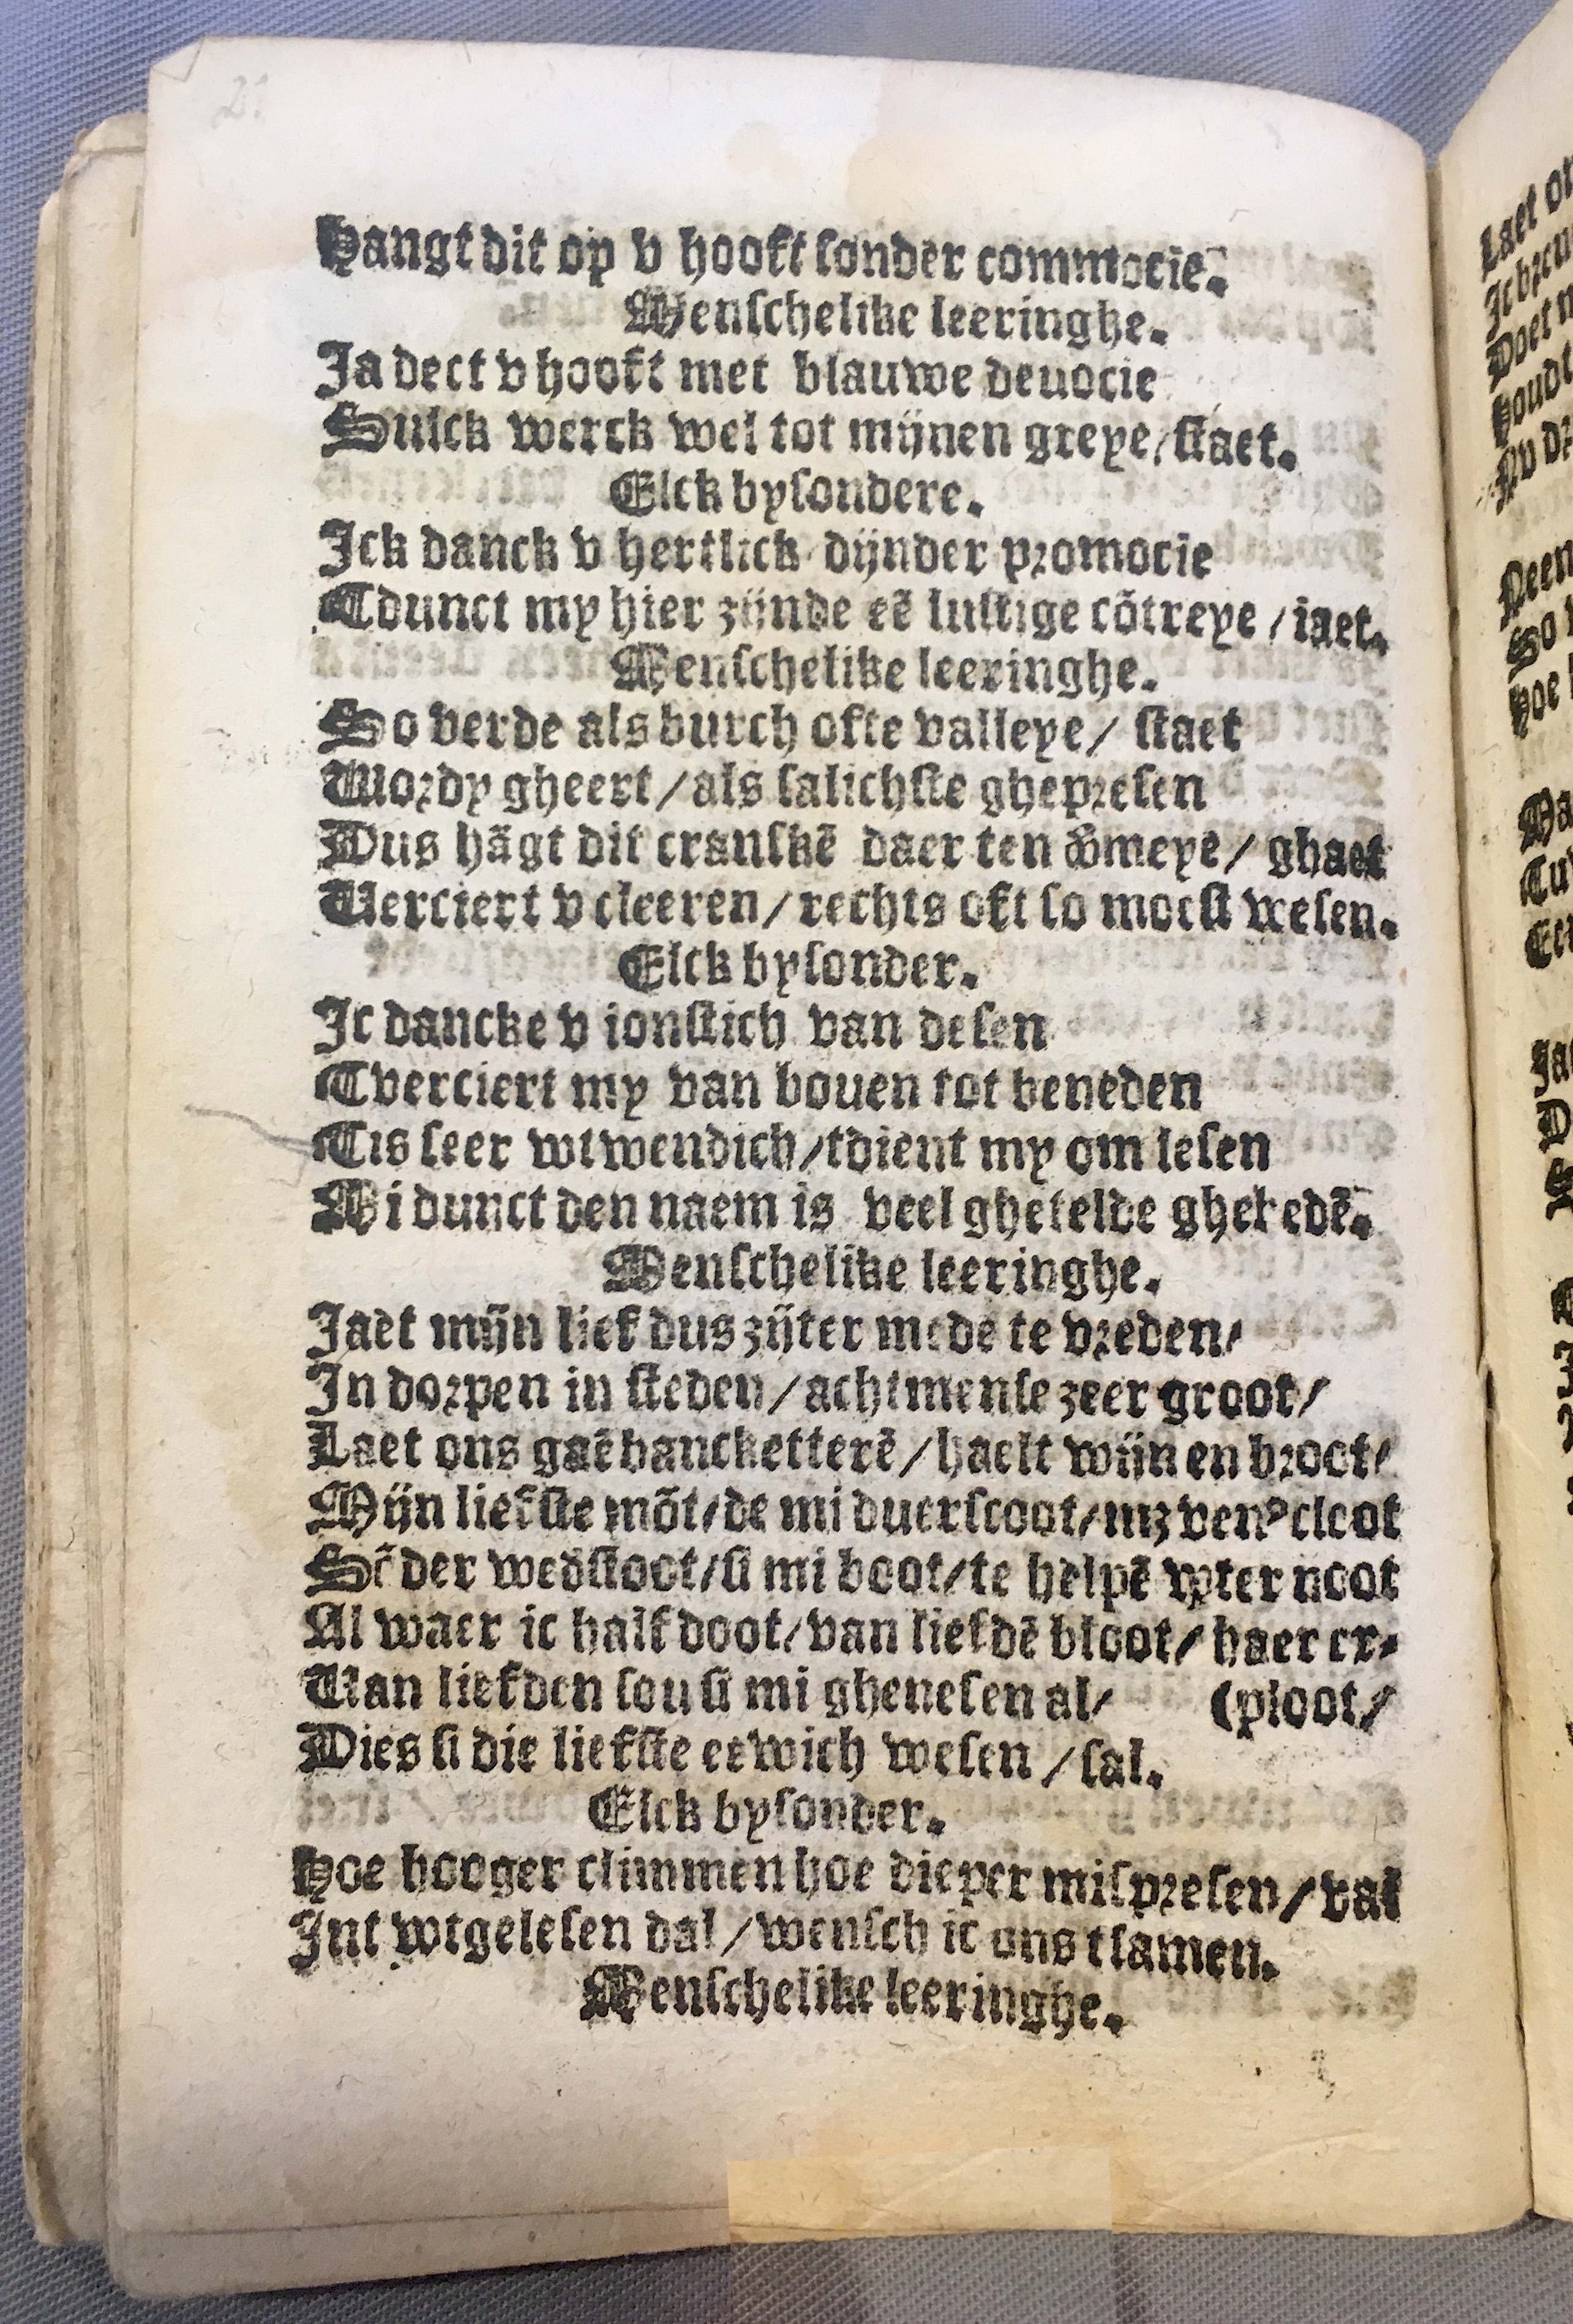 21
Hangt dit op v hooft sonder commocie.
Menschelike leeringhe.
Ja dect v hooft met blauwe deuocie
Sulck werck wel tot mijnen greye/staet.
Elck bysondere.
Ick danck v hertlick dijnder promocie
Tdunct my hier zijnde eē lustige cōtreye / iaet.
Menschelike leeringhe.
So verde als burch ofte valleye/ staet
Wordy gheert/als salichste ghepresen
Dus hāgt dit cranskē daer ten v̄meye/ ghaet
Verciert v cleeren/rechts oft so moest wesen.
Elck bysonder.
Ic dancke v ionstich van desen
Tverciert my van bouen tot beneden
Tis seer wtwendich/tdient my om lesen
Mi dunct den naem is veel ghetelde ghebedē.
Menschelike leeringhe.
Jaet mijn lief dus zijter mede te vreden/
In dorpen in steden/achtmense zeer groot/
Laet ons gaē bancketterē/haelt wijn en broot/
Mijn liefste mōt/de mi duerscoot/mz venꝰ cloot
Sōder wed̄stoot/si mi boot/te helpē wter noot
Al waer ic half doot/van liefdē bloot/ haer er-
Van liefden sou si mi ghenesen al/ (ploot/
Dies si die liefste eewich wesen /sal.
Elck bysonder.
Hoe hooger climmen hoe dieper mispresen/val
Int wtgelesen dal/wensch ic ons tsamen.
Menschelike leeringhe.
Laet
Doet
houdt
Neen
So
hoe